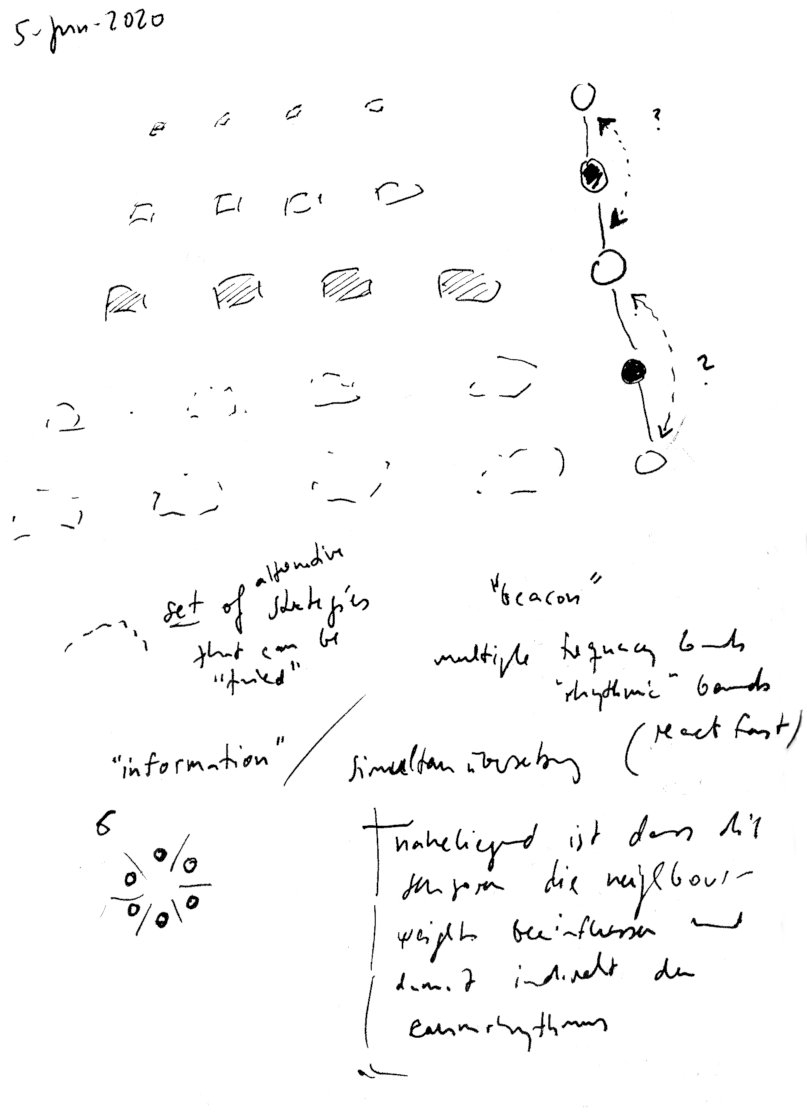 5-Jun-2020
?
?
alternative
set of strategies
that can be
"tried"
"beacon"
multiple frequency bands
"rhythmic" bands
(react fast)
"information" / simultan übersetzung
6
naheliegend ist dass die
sensoren die neighbour-
weights beeinflussen und
damit indirekt den
raumrhythmus